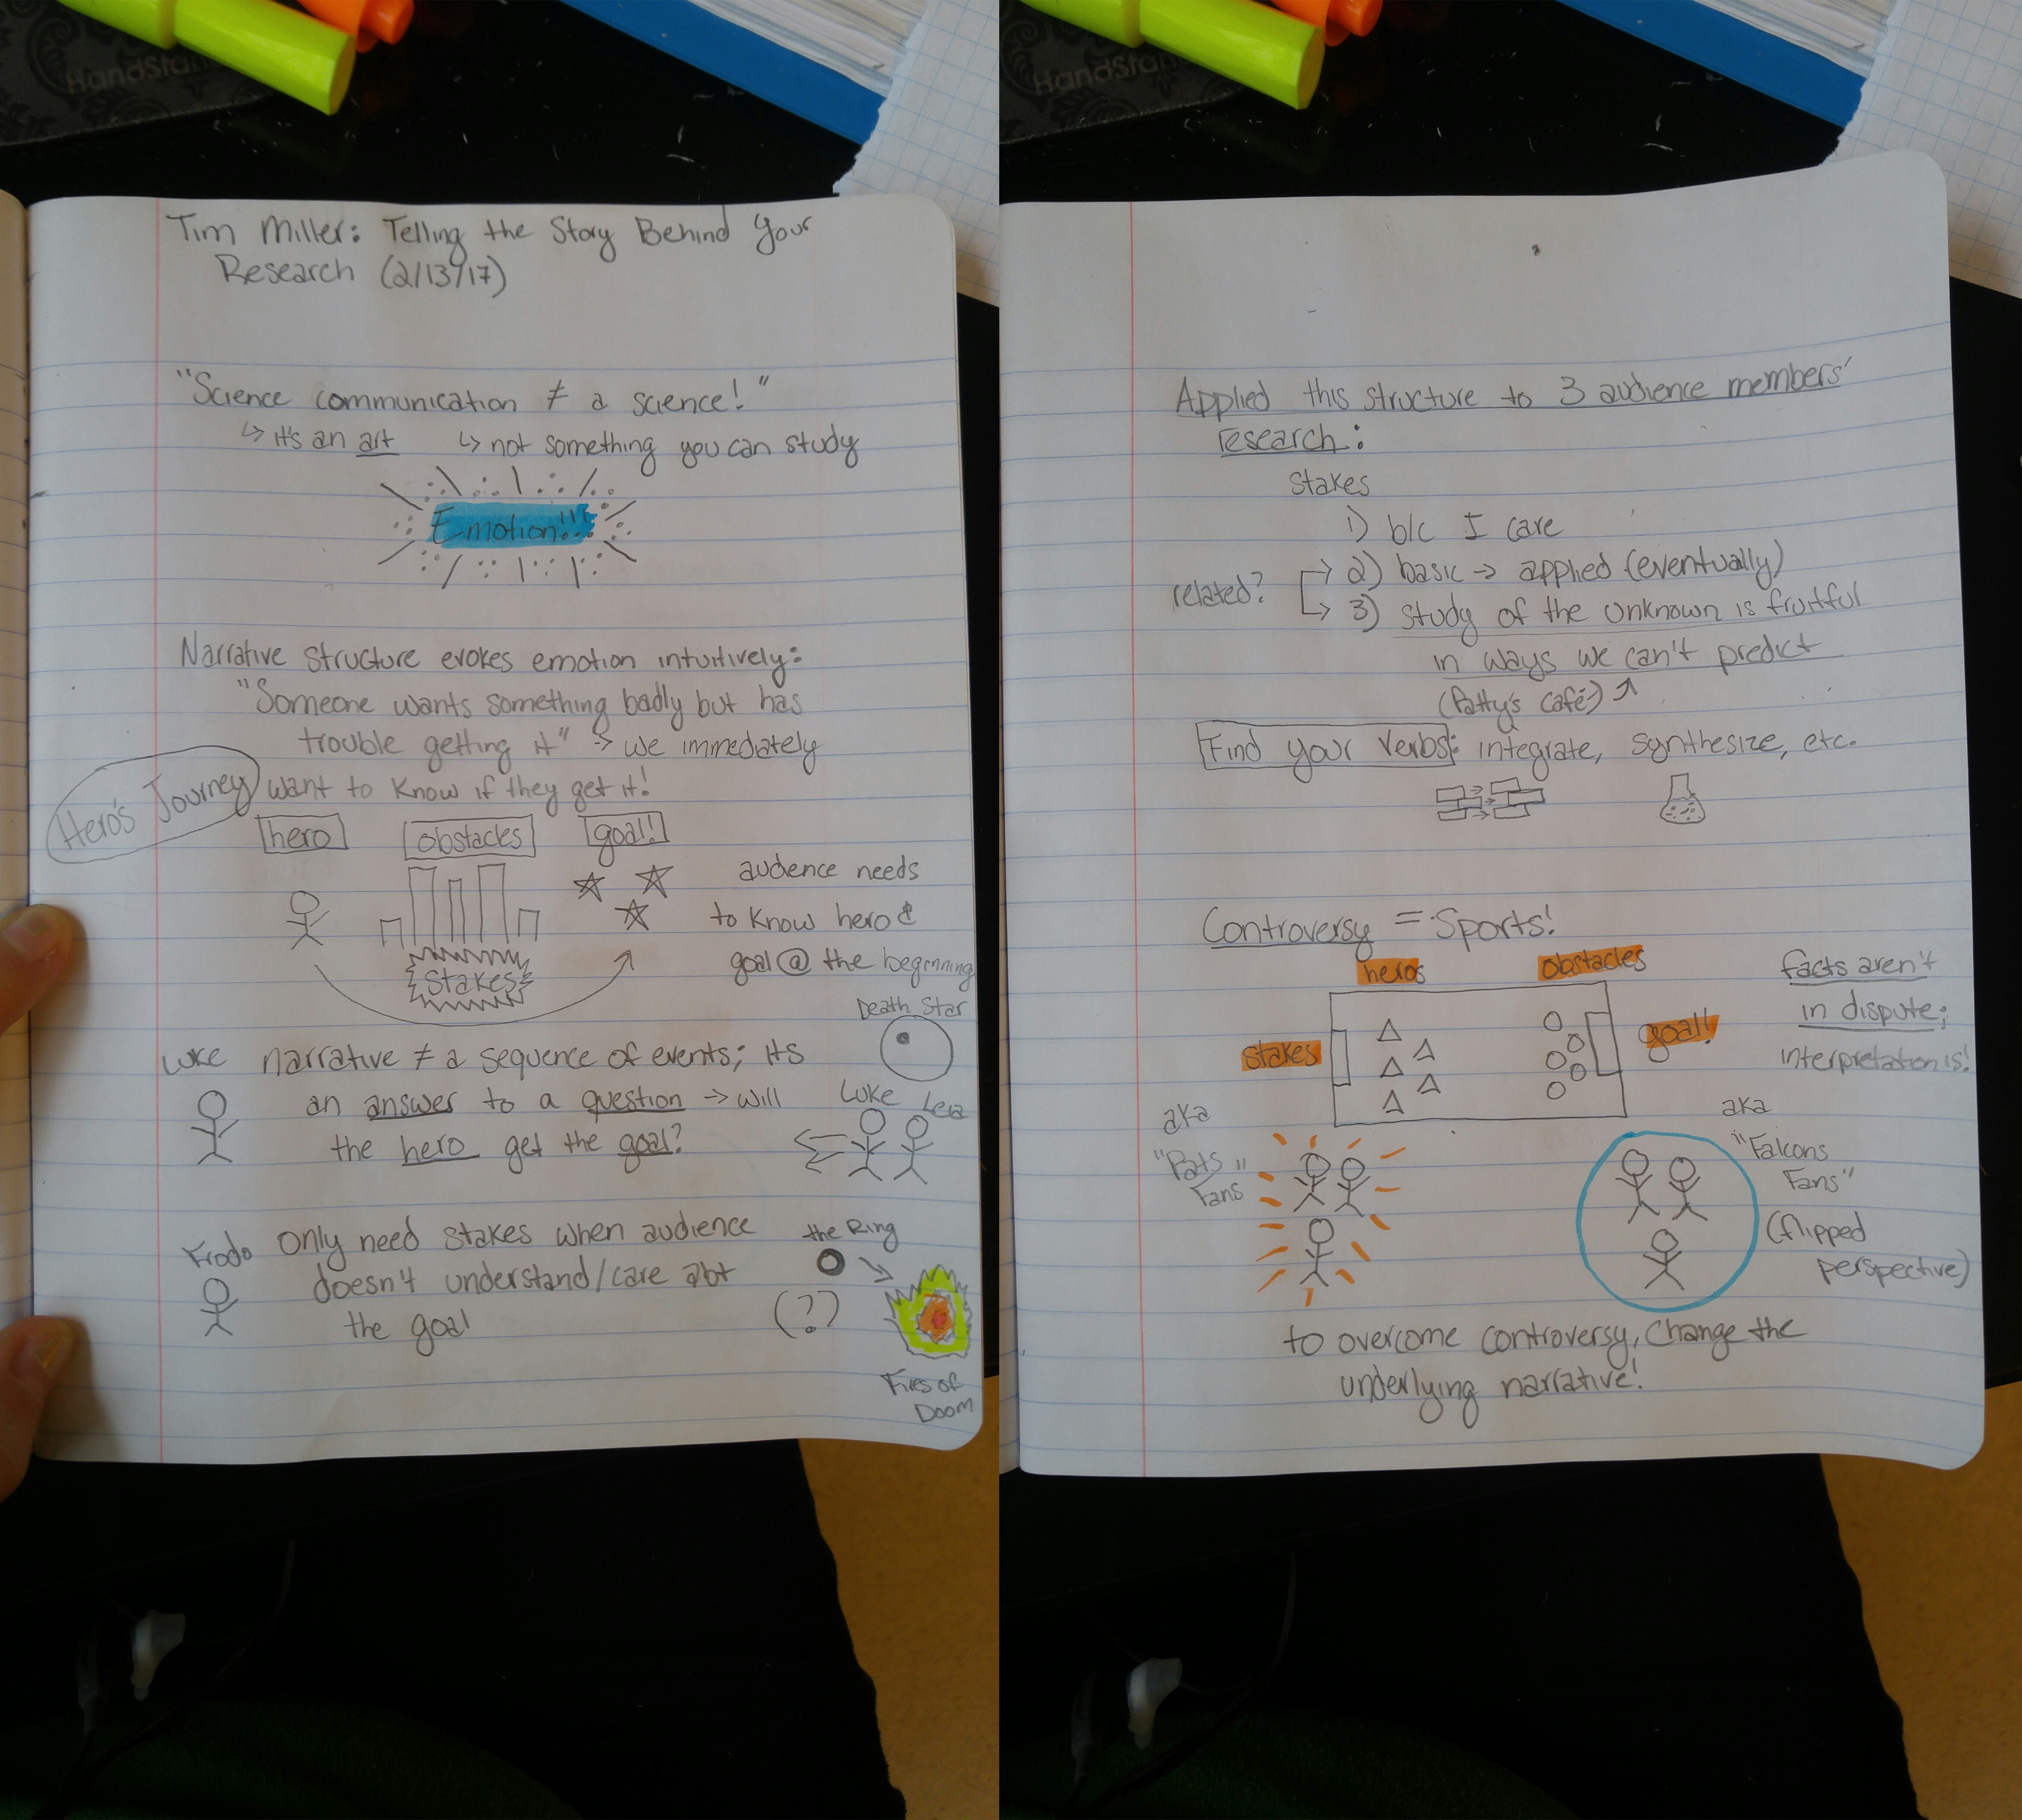 HandSta
Tim Miller: Telling the Story Behind Your
Research (2/13/17)
"Science communication ≠ a science!"
↳ it's an art ↳ not something you can study
Emotion!!!
Narrative structure evokes emotion intuitively:
"Someone wants something badly but has
trouble getting it" → we immediately
want to know if they get it!
Hero's Journey
hero obstacles goal!
audience needs
to know hero &
goal @ the beginning
stakes
Death Star
Luke narrative ≠ a sequence of events; its
an answer to a question → will
the hero get the goal?
Luke Leia
Frodo only need stakes when audience
doesn't understand/care abt
the goal
the Ring
(?)
Fires of
Doom
HandSta
Applied this structure to 3 audience members'
research:
Stakes
1) b/c I care
related? → 2) basic → applied (eventually)
↳ 3) study of the unknown is fruitful
in ways we can't predict
(Patty's café) ↗
Find your verbs: integrate, synthesize, etc.
Controversy = Sports!
heros obstacles
stakes goal!
facts aren't
in dispute;
interpretation is!
aka
"Pats"
Fans
aka
"Falcons
Fans"
(flipped
perspective)
to overcome controversy, change the
underlying narrative!